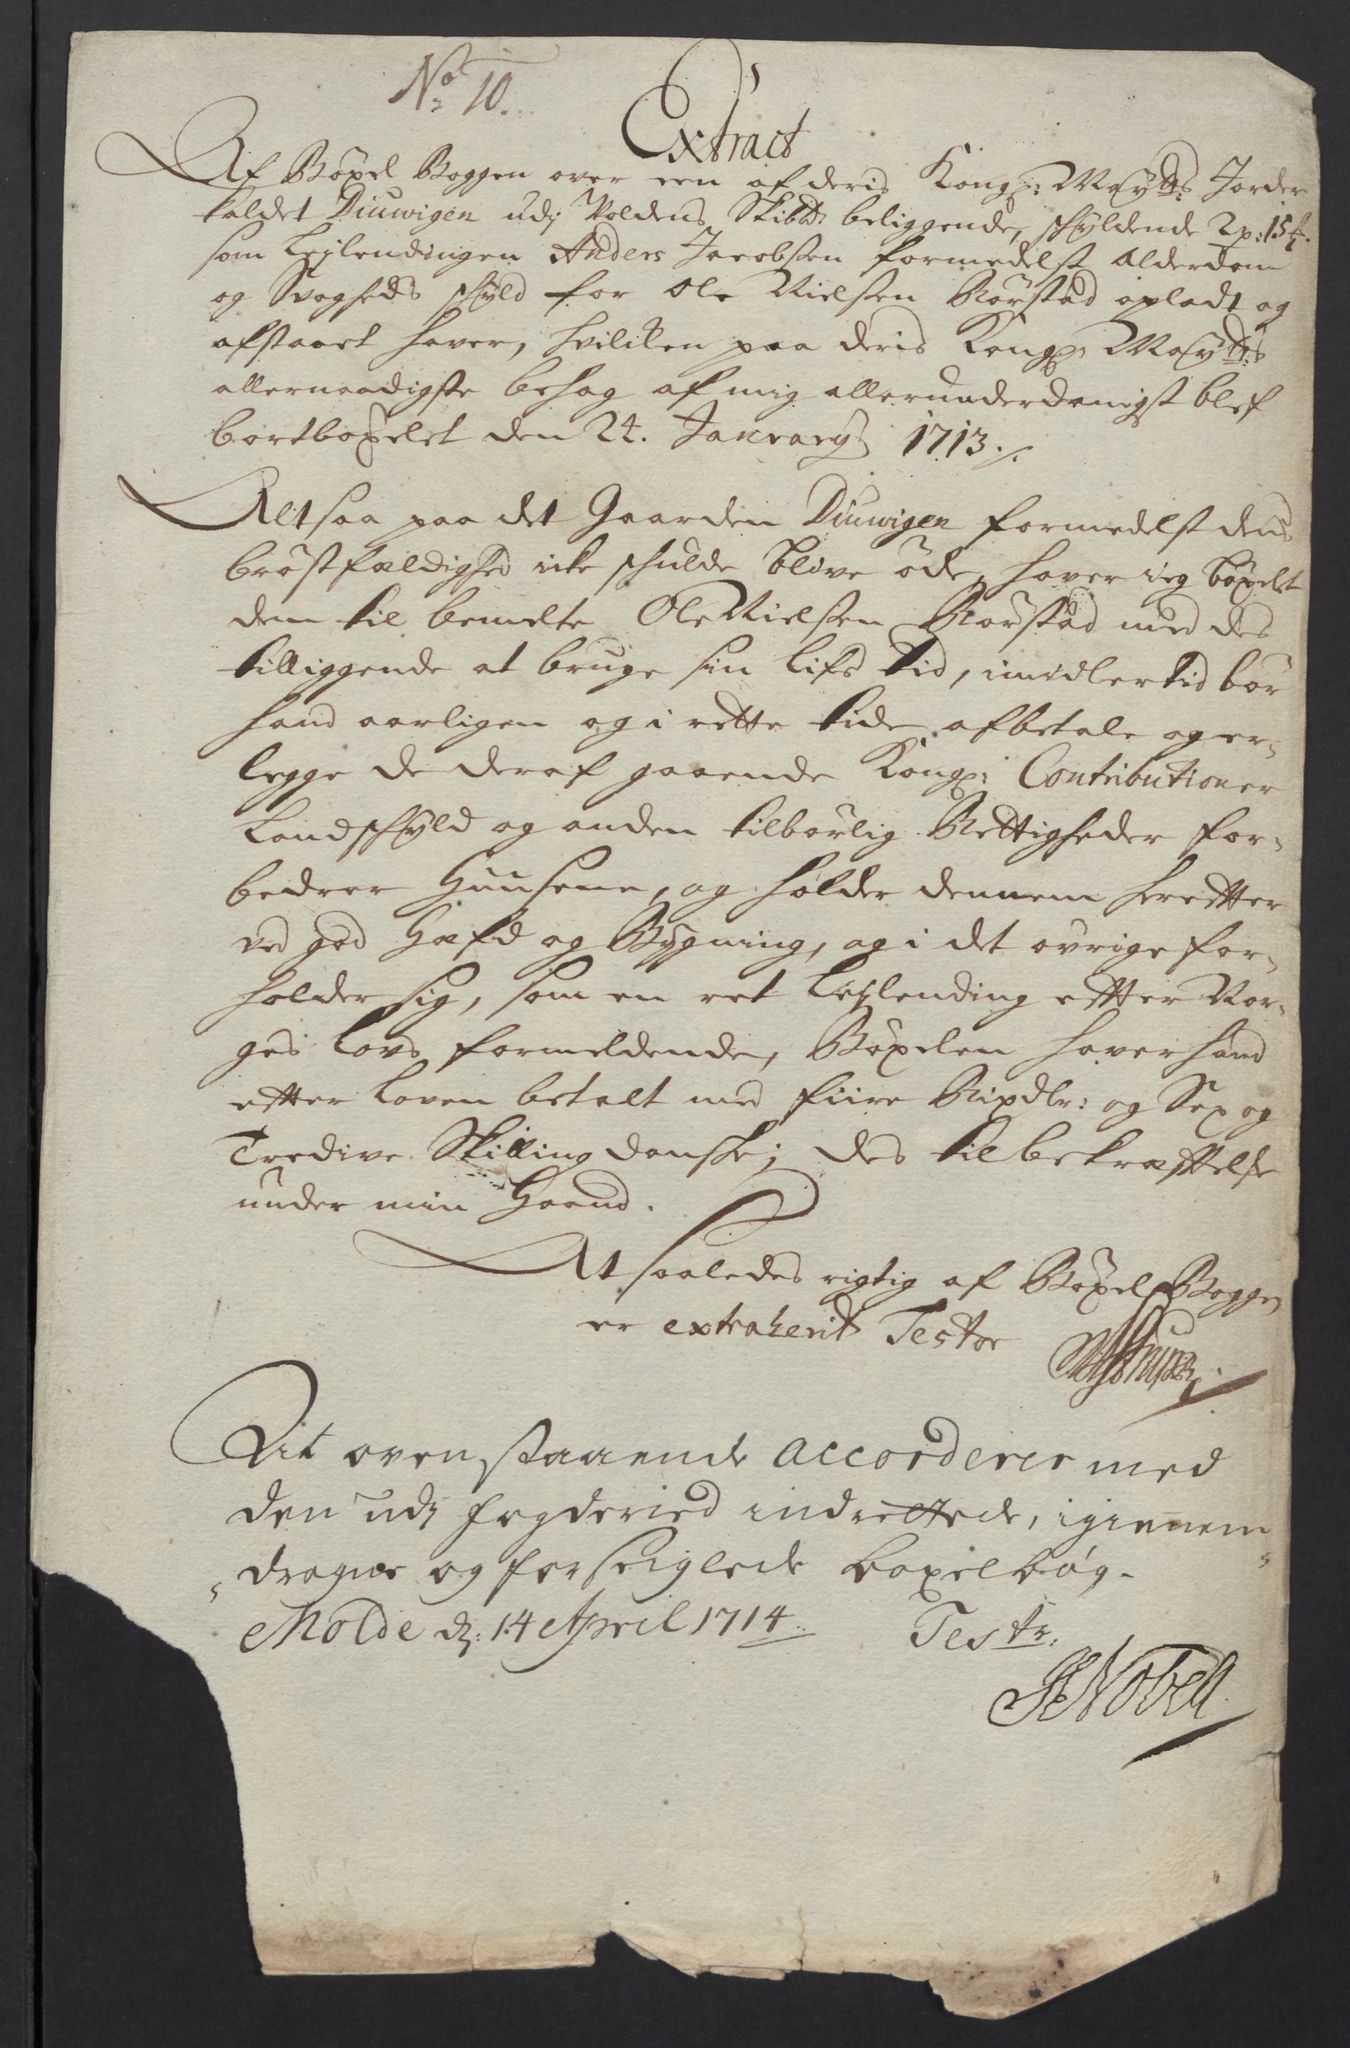 No 10.
Extract
Af Böxel Boggen over een af deris Kongl: Mayts Jorder
kaldet Diuwigen udj Voldens Skibbr: beliggende, schyldende 2 p: 15
som Leylendingen Anders Jacobsen formedelst Alderdom
og Svagheds schyld for Ole Nielsen Rörstad opladt og
afstaaet haver, hvilcken paa deris Kongl: Mayts
allernaadigste behag af mig allerunderdanigst blef
bortböxelet den 24. January 1713 ./.
Altsaa paa det Gaarden Diuwigen formedelst dens
bröstfældighed icke schulde blive öde, haver ieg böxelt
dem til bemelte Ole Nielsen Rörstad med des
tilliggende at bruge sin lifs tid, imidlertid bör
hand aarligen og i rette tide afbetale og er-
legge de deraf gaaende Kongl: Contributioner
Landschyld og anden tilbörlig Rettigheder for-
bedrer Huusene, og holder dennem herefter
ved god Hæfd og Bygning, og i det övrige for-
holder sig, som en ret Leylending efter Nor-
ges Lovs formeldende, Böxelen haver hand
efter Loven betalt med fiire Rixdlr: og Sex og
Tredive Skilling danske; des til bekræftelse
under min Haand.
At saaledes rigtig af Böxel Boggen
er extraherit Testor
At ovenstaaende accorderer med
den udj fogderied indrettede, igiennem
dragne og forseiglede boxelbog.
Molde d: 14 April 1714. Testr.
Nobell